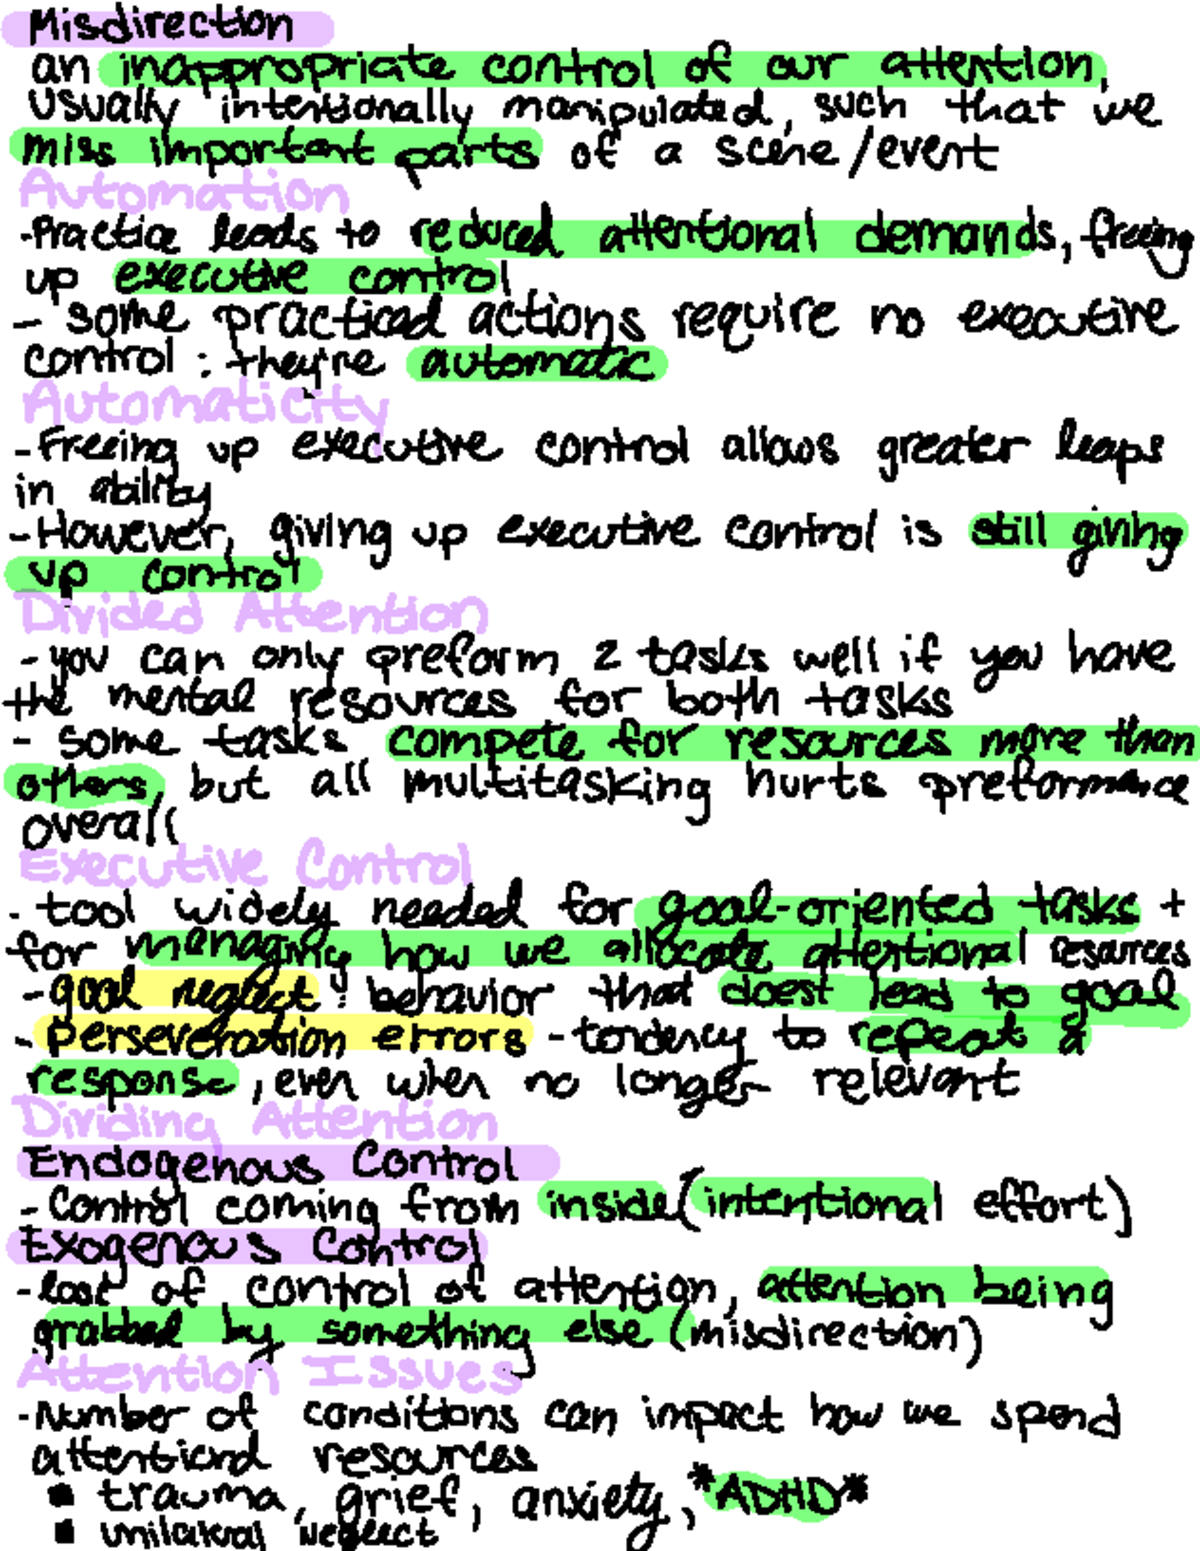 Misdirection
an inappropriate control of our attention,
usually intentionally manipulated, such that we
miss important parts of a scene/event
Automation
-Practice leads to reduced attentional demands, freeing
up executive control
- some practiced actions require no executive
control : they're automatic
Automaticity
-Freeing up executive control allows greater leaps
in ability
-However, giving up executive control is still giving
up control
Divided Attention
-you can only preform 2 tasks well if you have
the mental resources for both tasks
- some tasks compete for resources more than
others, but all multitasking hurts preformance
overall
Executive Control
- tool widely needed for goal-oriented tasks +
for managing how we allocate attentional resources
-goal neglect: behavior that doest lead to goal
- perseveration errors - tendency to repeat a
response, even when no longer relevant
Dividing Attention
Endogenous Control
- Control coming from inside (intentional effort)
Exogenous Control
-lost of control of attention, attention being
grabbed by something else (misdirection)
Attention Issues
-Number of conditions can impact how we spend
attentional resources
▪ trauma, grief, anxiety, *ADHD*
▪ unilateral neglect